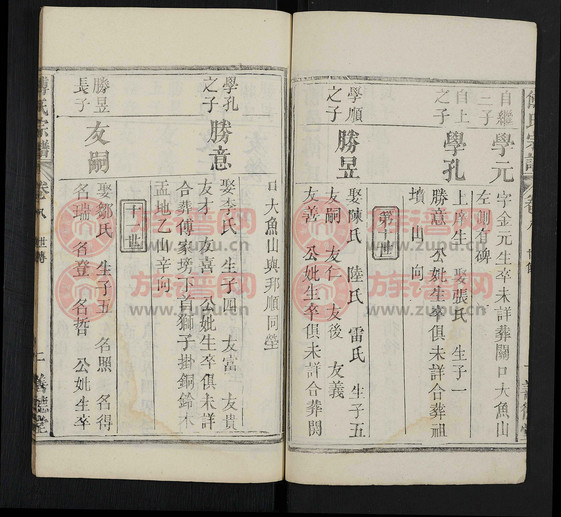 自繼
三子
學元
字金元生卒未詳葬關口大魚山
左側有碑
自上
之子
學孔
上庠生 娶張氏 生子一
勝意 公妣生卒俱未詳合葬祖
墳 山 向
第十世
學順
之子
勝昱
娶陳氏 陸氏 雷氏 生子五
友嗣 友仁 友後 友義
友善 公妣生卒俱未詳合葬関
口大魚山與邦順同塋
學孔
之子
勝意
娶李氏 生子四 友富 友貴
友才 友喜 公妣生卒俱未詳
合葬傅家塝下首獅子掛銅鈴木
孟地乙山辛向
十一世
勝昱
長子
友嗣
娶鄒氏 生子五 名照 名得
名瑞 名登 名哲 公妣生卒
傅氏宗譜
卷八 世傳
善德堂
族譜网
zupu.cn